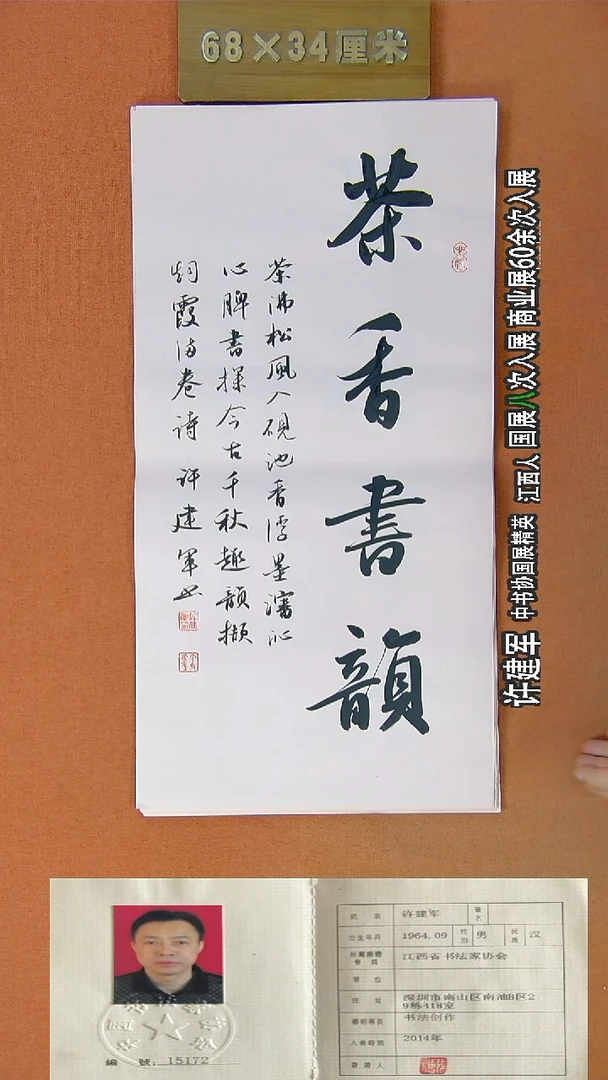 68×34厘米
茶香書韻
茶沸松風入硯池香浮墨瀋沁
心脾書探今古千秋趣韻擷
烟霞滿卷诗 许建军书
许建军 中书协国展精英 江西人 国展八次入展 商业展60余次入展
姓名 许建军 署名
出生年月 1964.09 性别 男 民族 汉
所属团体会员 江西省书法家协会
单位
住址 深圳市南山区南油B区2
9栋418室
艺术专长 书法创作
入会时间 2014年
签发人
编號：15172